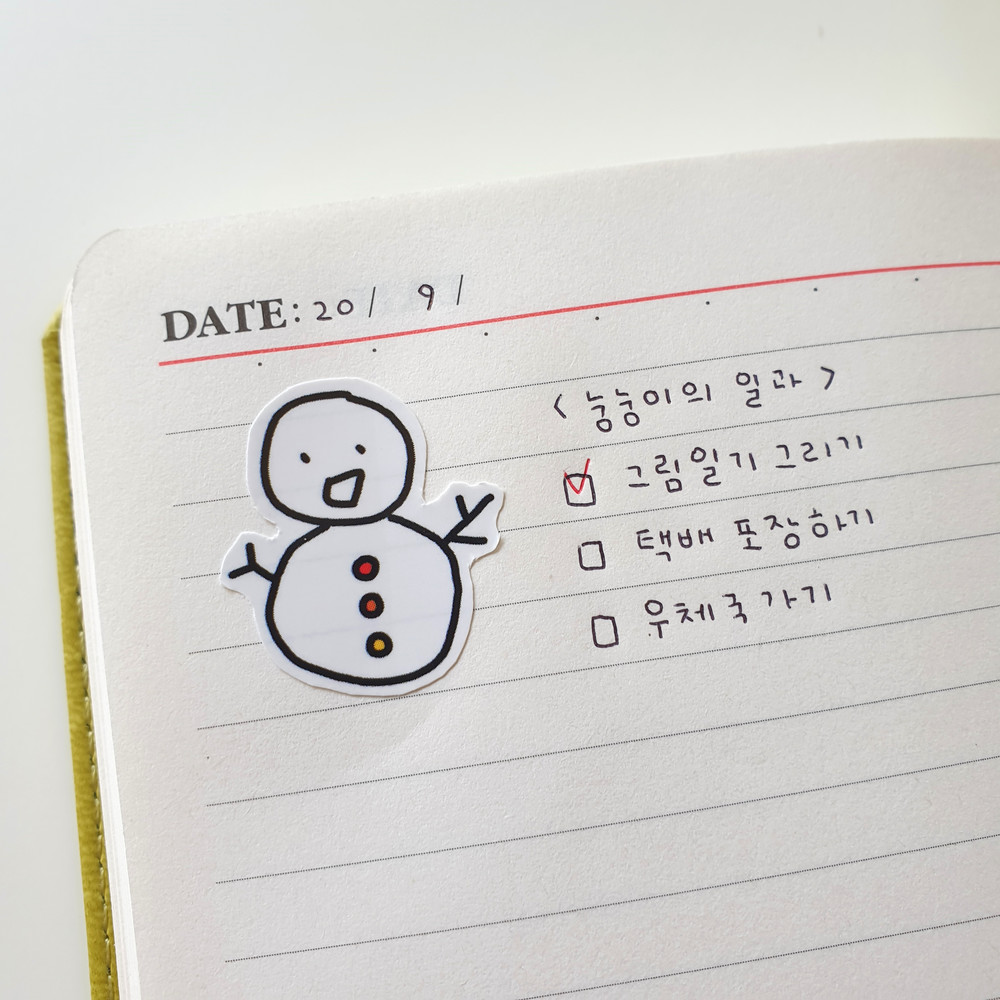 DATE: 20 / 9 /
< 눙눙이의 일과 >
그림일기 그리기
택배 포장하기
우체국 가기